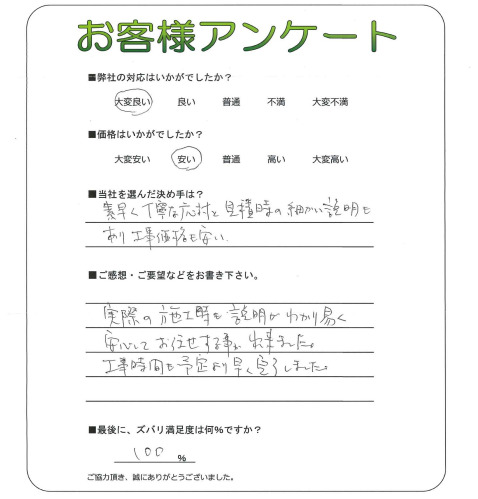 お客様アンケート
■弊社の対応はいかがでしたか？
大変良い 良い 普通 不満 大変不満
■価格はいかがでしたか？
大変安い 安い 普通 高い 大変高い
■当社を選んだ決め手は？
素早く丁寧な応対と見積時の細かい説明も
あり工事価格も安い
■ご感想・ご要望などをお書き下さい。
実際の施工時も説明がわかり易く
安心してお任せする事が出来ました。
工事時間も予定より早く完了しました。
■最後に、ズバリ満足度は何％ですか？
100 ％
ご協力頂き、誠にありがとうございました。